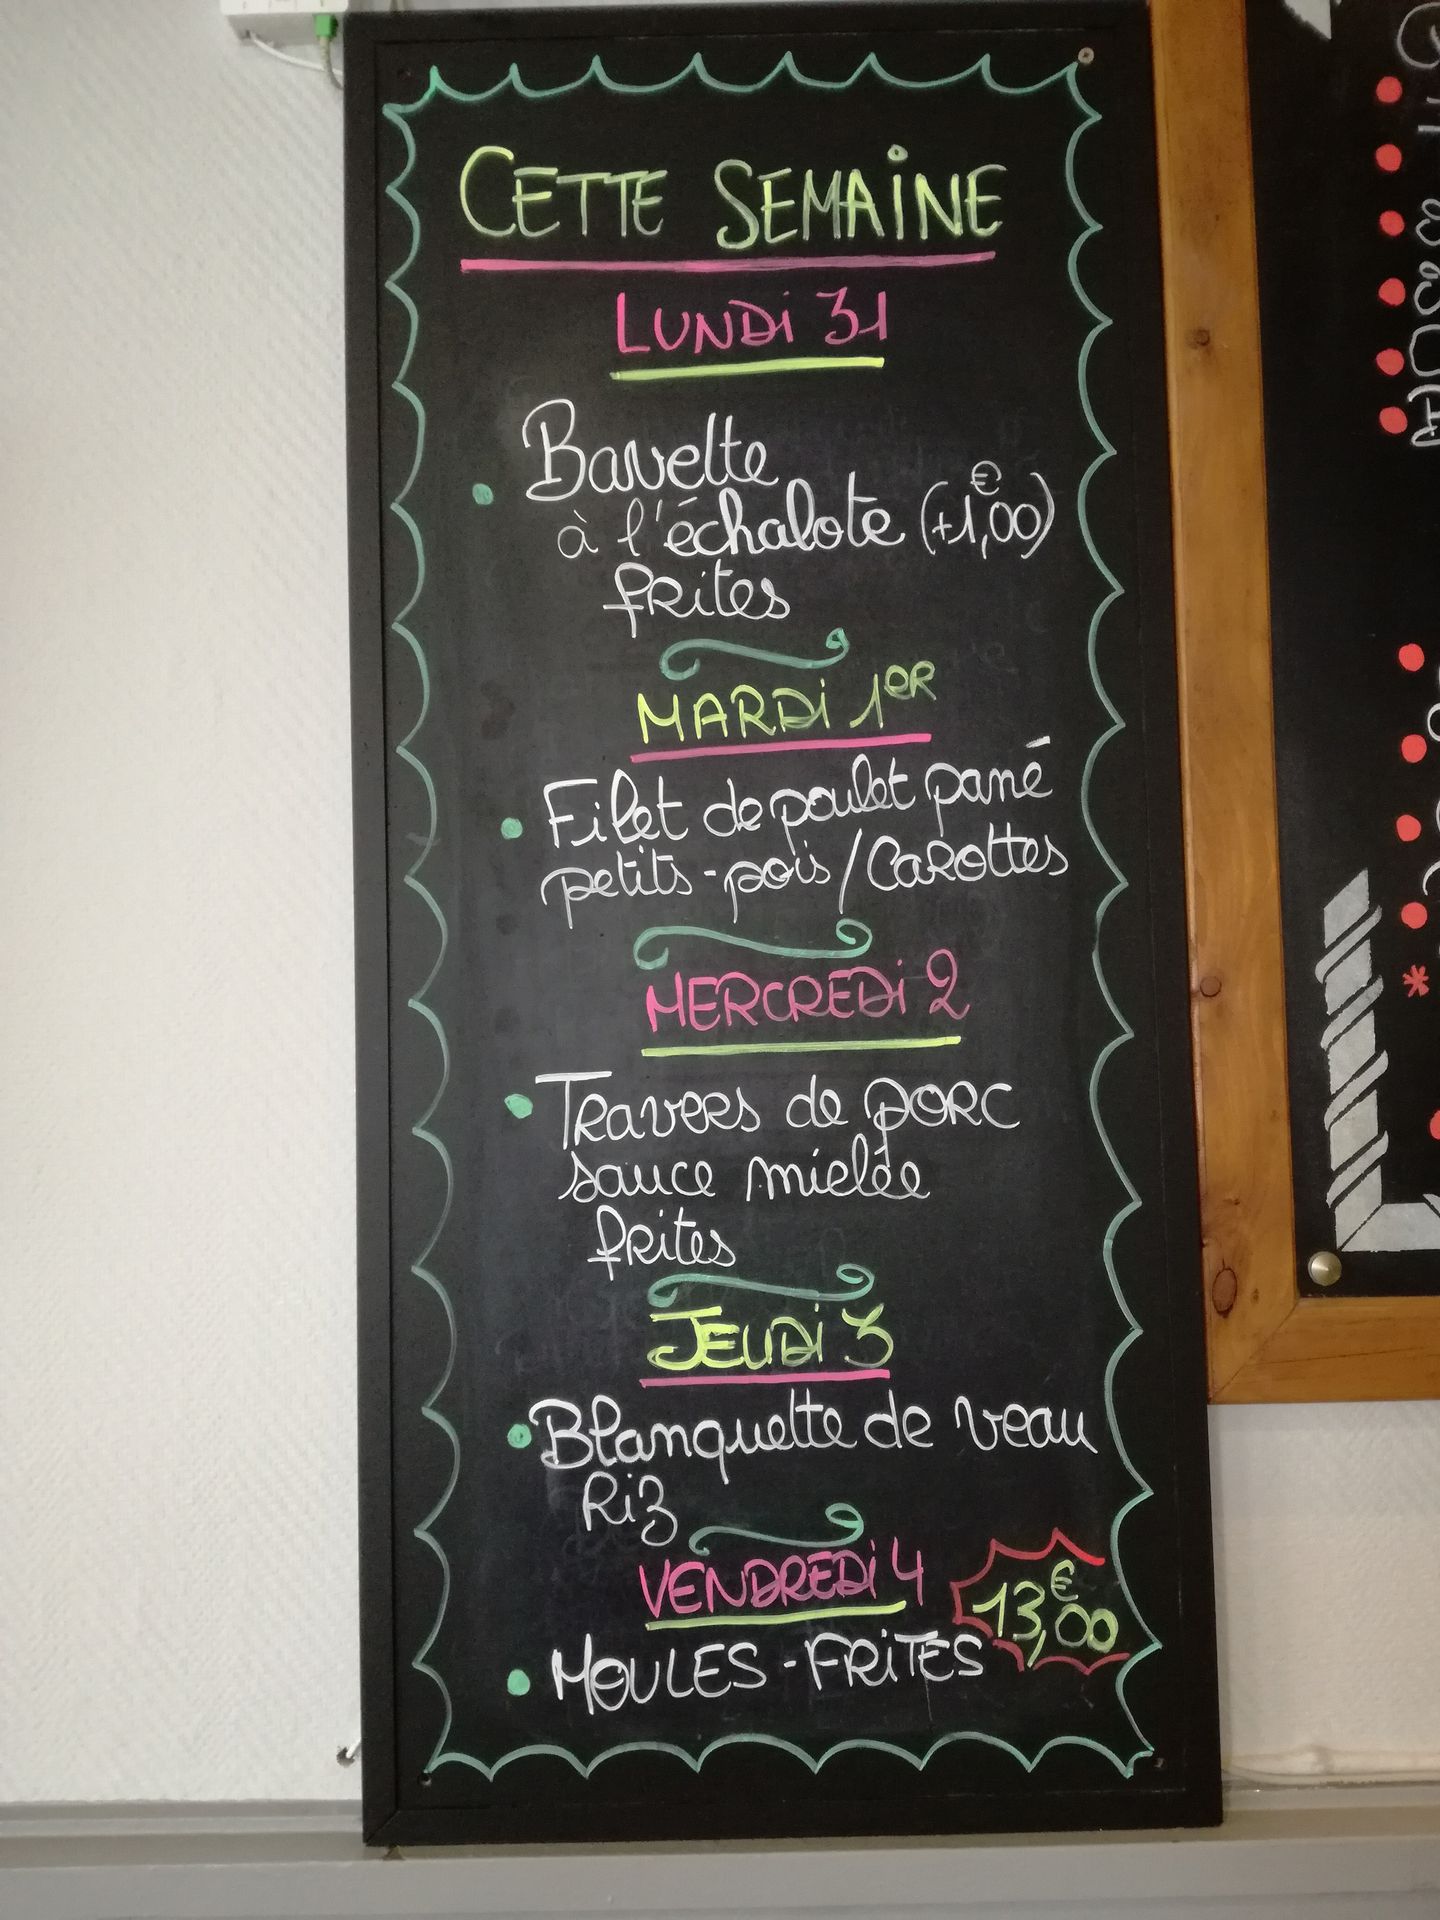 CETTE SEMAINE
LUNDI 31
• Bavette
à l'échalote (+1,00€)
frites
MARDI 1ER
• Filet de poulet pané
petits-pois/Carottes
MERCREDI 2
• Travers de porc
sauce mielée
frites
JEUDI 3
• Blanquette de veau
Riz
VENDREDI 4
13,00€
• MOULES-FRITES